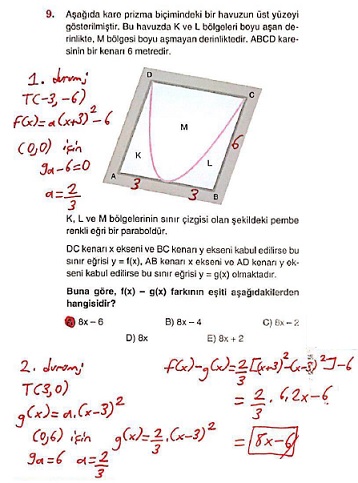 9. Aşağıda kare prizma biçimindeki bir havuzun üst yüzeyi
gösterilmiştir. Bu havuzda K ve L bölgeleri boyu aşan de-
rinlikte, M bölgesi boyu aşmayan derinliktedir. ABCD kare-
sinin bir kenarı 6 metredir.
1. durum;
T(-3, -6)
f(x)=a(x+3)²-6
(0,0) için
9a-6=0
a=2/3
D
C
M
K
L
6
A
3
3
B
K, L ve M bölgelerinin sınır çizgisi olan şekildeki pembe
renkli eğri bir paraboldür.
DC kenarı x ekseni ve BC kenarı y ekseni kabul edilirse bu
sınır eğrisi y = f(x), AB kenarı x ekseni ve AD kenarı y ek-
seni kabul edilirse bu sınır eğrisi y = g(x) olmaktadır.
Buna göre, f(x) – g(x) farkının eşiti aşağıdakilerden
hangisidir?
A) 8x – 6 B) 8x – 4 C) 8x – 2
D) 8x E) 8x + 2
2. durum;
T(3,0)
g(x)=a.(x-3)²
(0,6) için g(x)=2/3.(x-3)²
9a=6 a=2/3
f(x)-g(x)=2/3[(x+3)²-(x-3)²]-6
=2/3.6.2x-6
=8x-6